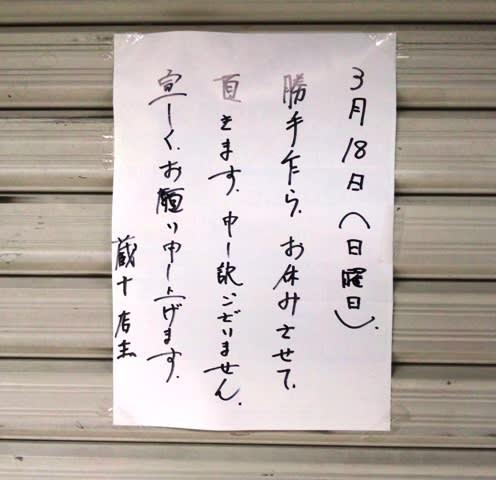 3月18日(日曜日).
勝手乍ら、お休みさせて、
頂きます。申し訳ございません。
宜しく、お願い申し上げます。
蔵十 店主